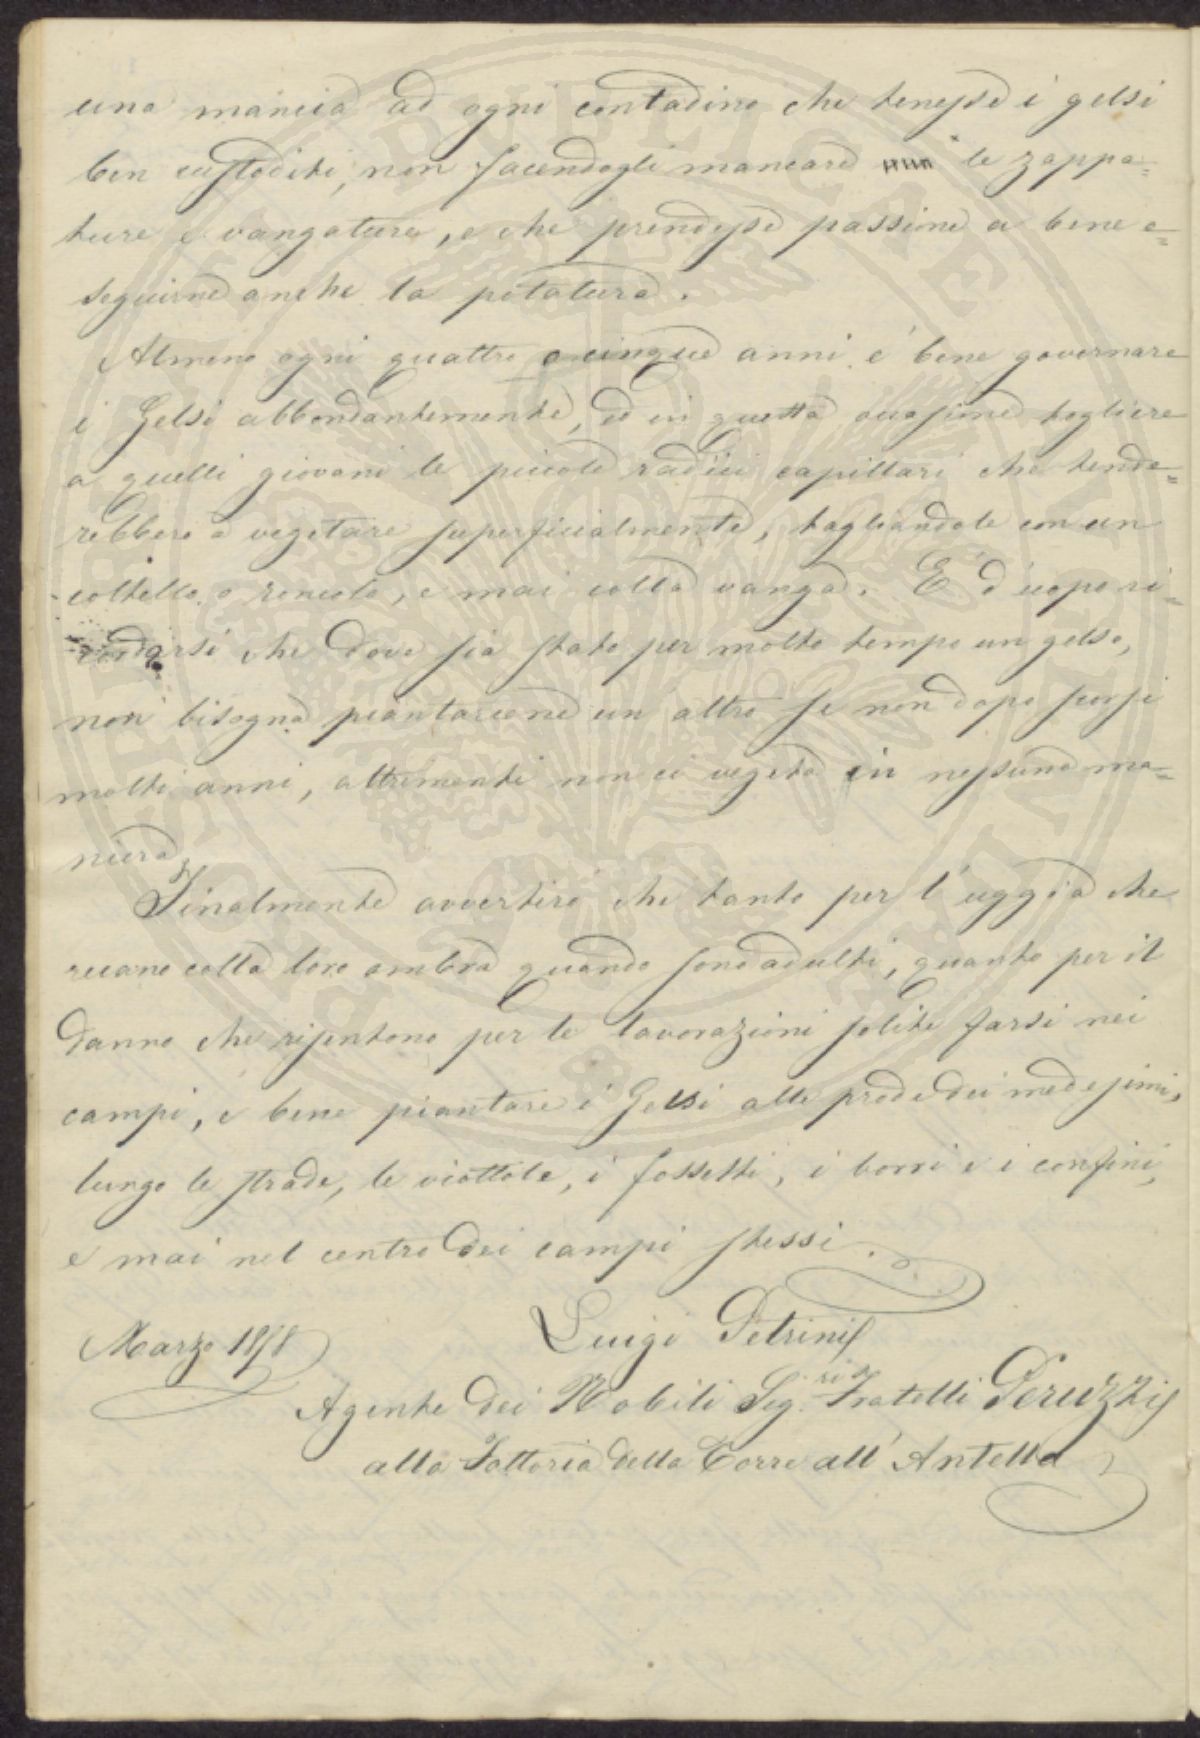 una mancia ad ogni contadino che tenesse i gelsi
ben custoditi, non facendogli mancare le zappa=
ture e vangature, e che prendesse passione a bene e=
seguirne anche la potatura.
Almeno ogni quattro o cinque anni è bene governare
i Gelsi abbondantemente, ed in quella occasione togliere
a quelli giovani le piccole radici capillari che tende=
rebbero a vegetare superficialmente, tagliandole con un
coltello o roncola, e mai colla vanga. E' d'uopo ri=
cordarsi che dove sia stato per molto tempo un gelso,
non bisogna piantarcene un altro se non dopo scorsi
molti anni, altrimenti non ci vegeta in nessuna ma=
niera.
Finalmente avvertirò che tanto per l'uggia che
recano colla loro ombra quando sono adulti, quanto per il
danno che risentono per le lavorazioni solite farsi nei
campi, è bene piantare i Gelsi alle prode dei medesimi,
lungo le strade, le viottole, i fossetti, i borri e i confini,
e mai nel centro dei campi stessi.
Luigi Petrini
Marzo 1878
Agente dei Nobili Sig.ri Fratelli Peruzzi
alla Fattoria della Torre all'Antella